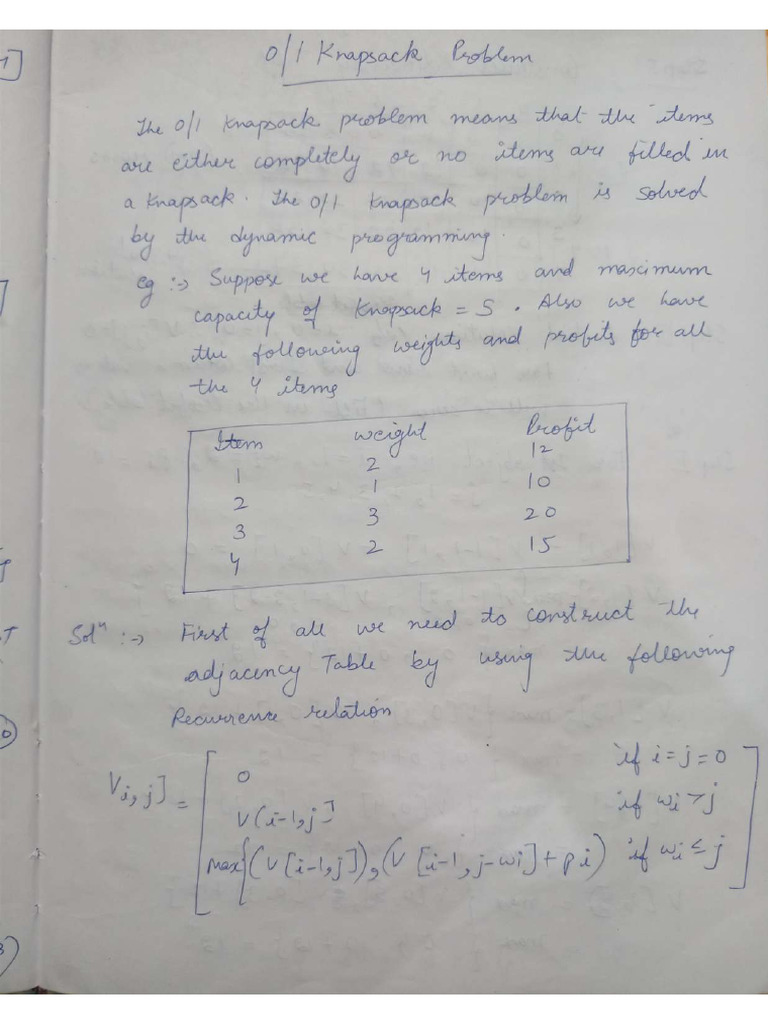 0/1 Knapsack Problem
The 0/1 Knapsack problem means that the items
are either completely or no items are filled in
a Knapsack. The 0/1 Knapsack problem is solved
by the dynamic programming.
eg :-> Suppose we have 4 items and maximum
capacity of Knapsack = 5 . Also we have
the following weights and profits for all
the 4 items
Item weight Profit
1 2 12
2 1 10
3 3 20
4 2 15
Solⁿ :-> First of all we need to construct the
adjacency Table by using the following
Recurrence relation
Vi,j] = [ 0 if i=j=0
V(i-1,j] if wi>j
max{(V[i-1,j]),(V[i-1,j-wi]+pi) if wi≤j ]